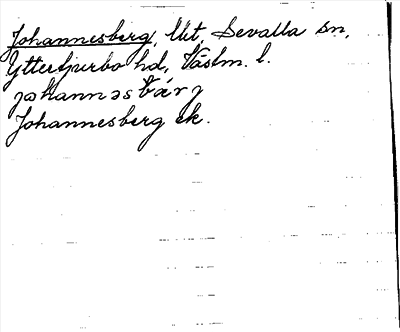 Johannesberg, Utt, Sevalla sn,
Ytterkjurbo hd, Västm. l.
johannəsbárj
Johannesberg ek.